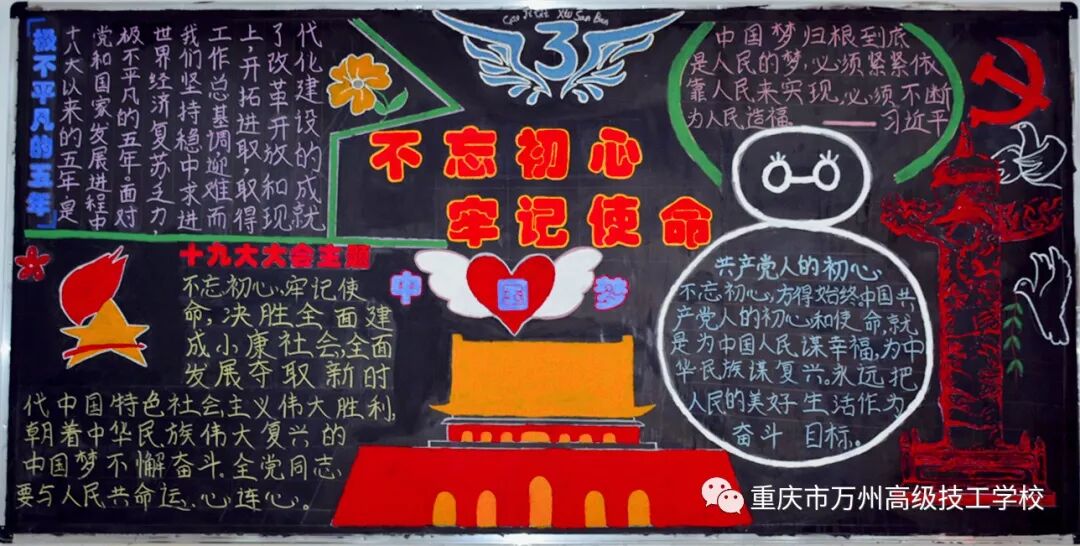 极不平凡的五年
十八大以来的五年,是
党和国家发展进程中
极不平凡的五年。面对
世界经济复苏乏力,
我们坚持稳中求进
工作总基调迎难而
上,开拓进取,取得
了改革开放和现
代化建设的成就
3
不忘初心
牢记使命
中国梦归根到底
是人民的梦,必须紧紧依
靠人民来实现,必须不断
为人民造福。——习近平
十九大大会主题
不忘初心、牢记使
命,决胜全面建
成小康社会,全面
发展夺取新时
代中国特色社会主义伟大胜利,
朝着中华民族伟大复兴的
中国梦不懈奋斗.全党同志,
要与人民共命运、心连心。
中国梦
共产党人的初心
不忘初心,方得始终.中国共
产党人的初心和使命,就
是为中国人民谋幸福,为中
华民族谋复兴。永远把
人民的美好生活作为
奋斗目标。
重庆市万州高级技工学校